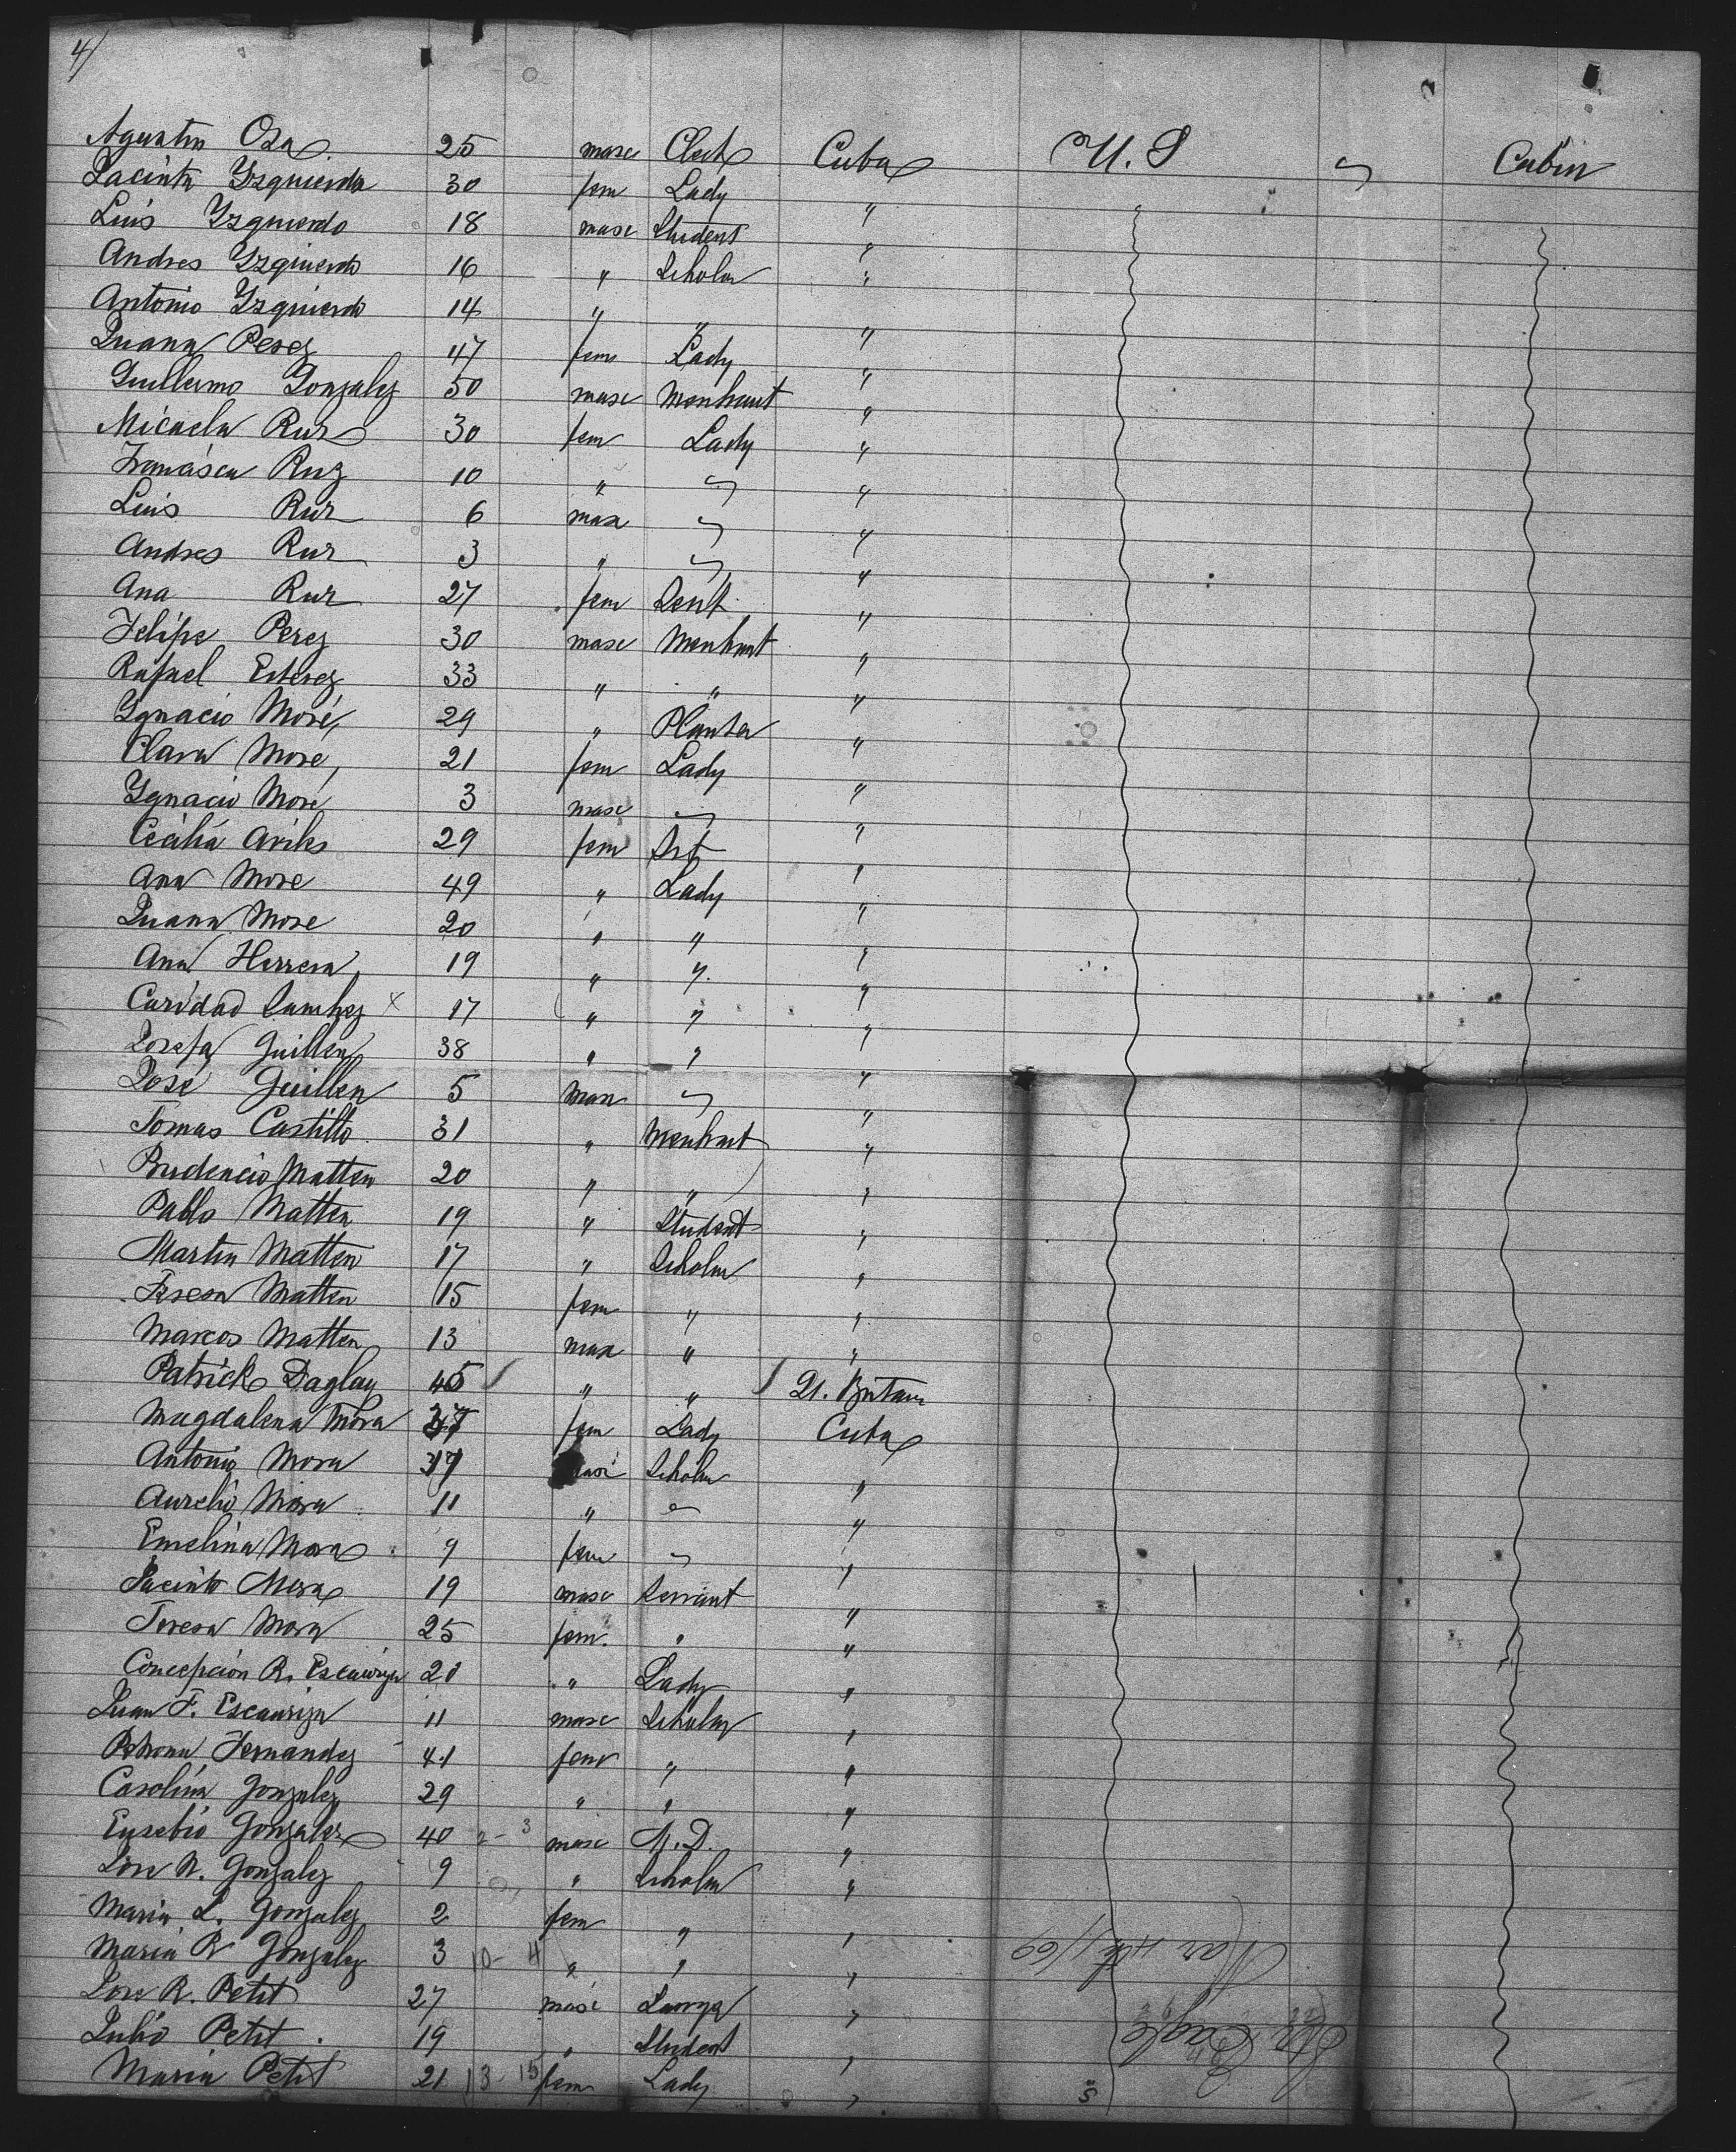 4/
Agustin Osa 25 masc Clerk Cuba U.S Cabin
Jacinta Yzquierda 30 fem Lady "
Luis Yzquierdo 18 masc Student "
Andres Yzquierdo 16 " Scholar "
Antonio Yzquierdo 14 " " "
Juana Perez 47 fem Lady "
Guillermo Gonzalez 50 masc Merchant "
Micaela Ruz 30 fem Lady "
Francisca Ruz 10 " "
Luis Ruz 6 masc "
Andres Ruz 3 " "
Ana Ruz 27 fem Servt "
Felipe Perez 30 masc Merchant "
Rafael Estevez 33 " " "
Ygnacio Moré, 29 " Planter "
Clara More, 21 fem Lady "
Ygnacio Moré, 3 masc "
Cecilia Aviles 29 fem "
Ana More 49 " Lady "
Juana More 20 " " "
Ana Herrera, 19 " " "
Caridad Sanchez x 17 " " "
Josefa Guillen 38 " " "
José Guillen 5 masc "
Tomas Castillo 31 " Merchant "
Prudencio Matten 20 " " "
Pablo Matten 19 " Student "
Martin Matten 17 " Scholar "
Teresa Matten 15 fem " "
Marcos Matten 13 masc " "
Patrick Daglay 45 " " Britain
Magdalena Mora fem Lady Cuba
Antonio Mora masc Scholar "
Aurelio Mora 11 " "
Emelina Mora 9 fem "
Jacinto Mora 19 masc Servant "
Teresa Mora 25 fem. " "
Concepcion R. Escauriza " Lady "
Juan F. Escauriza 11 masc Scholar "
Petrona Fernandez 41 fem " "
Carolina Gonzalez 29 " " "
Eusebio Gonzalez 40 2- 3 masc M.D. "
Jose N. Gonzalez 9 " Scholar "
Maria L. Gonzalez 2 fem " "
Maria R Gonzalez 3 10- 4 " " "
Jose R. Petit 27 masc "
Julio Petit 19 " Student "
Maria Petit 21 13- 15 fem Lady "
Str Eagle
Mar 11th/69